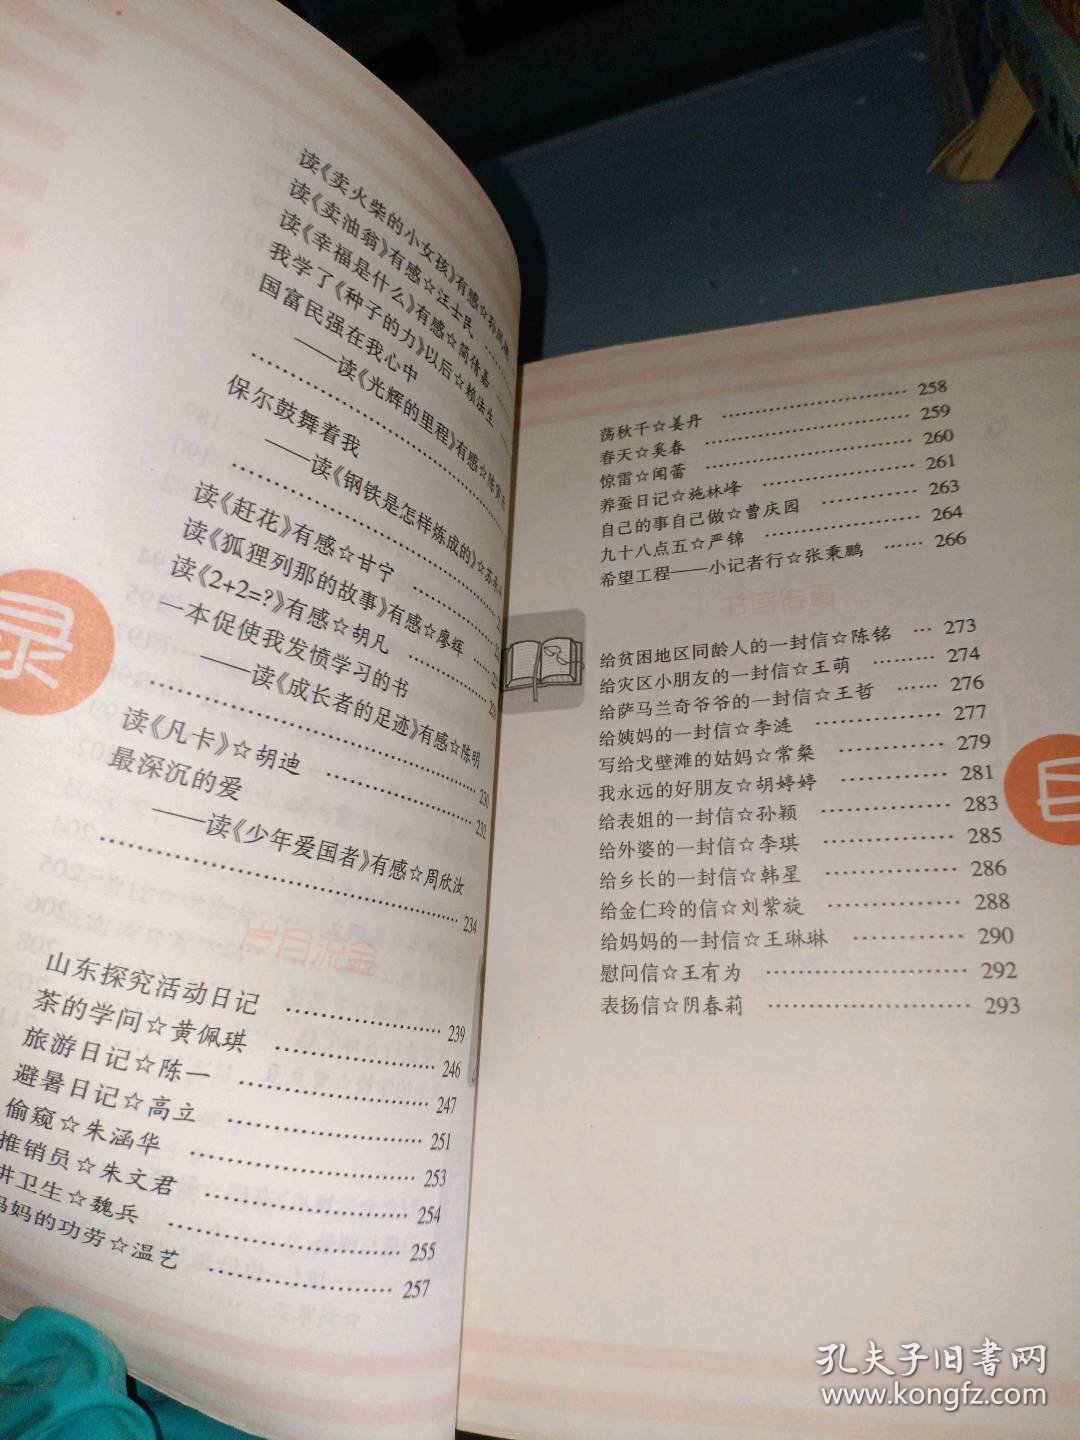 读《卖火柴的小女孩》有感☆孙
读《卖油翁》有感☆汪士民
读《幸福是什么》有感☆简倩嘉
我学了《种子的力》以后☆赖法生
国富民强在我心中
——读《光辉的里程》有感☆陈
保尔鼓舞着我
——读《钢铁是怎样炼成的》☆苏
读《赶花》有感☆甘宁
读《狐狸列那的故事》有感☆廖辉
读《2+2=?》有感☆胡凡
一本促使我发愤学习的书
——读《成长者的足迹》有感☆陈明
读《凡卡》☆胡迪 230
最深沉的爱 232
——读《少年爱国者》有感☆周欣汝
234
岁月流金
山东探究活动日记 239
茶的学问☆黄佩琪 246
旅游日记☆陈一 247
避暑日记☆高立 251
偷窥☆朱涵华 253
推销员☆朱文君 254
讲卫生☆魏兵 255
妈妈的功劳☆温艺 257
录
荡秋千☆姜丹 258
春天☆奚春 259
惊雷☆闻蕾 260
养蚕日记☆施林峰 261
自己的事自己做☆曹庆园 263
九十八点五☆严锦 264
希望工程——小记者行☆张秉鹏 266
给贫困地区同龄人的一封信☆陈铭 273
给灾区小朋友的一封信☆王萌 274
给萨马兰奇爷爷的一封信☆王哲 276
给姨妈的一封信☆李涟 277
写给戈壁滩的姑妈☆常燊 279
我永远的好朋友☆胡婷婷 281
给表姐的一封信☆孙颖 283
给外婆的一封信☆李琪 285
给乡长的一封信☆韩星 286
给金仁玲的信☆刘紫旋 288
给妈妈的一封信☆王琳琳 290
慰问信☆王有为 292
表扬信☆阴春莉 293
目
孔夫子旧书网
www.kongfz.com